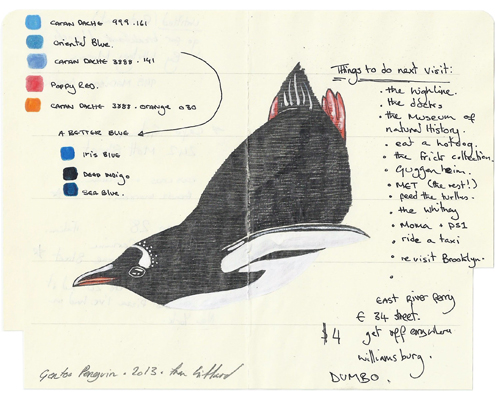 CARAN DACHE 999.161
Oriental Blue.
CARAN DACHE 3888.141
Poppy Red.
CARAN DACHE 3888. orange 030
A BETTER BLUE
Iris BLUE
DEAD INDIGO
SEA BLUE.
Things to do next visit:
• the highline.
• the docks
• the Museum of
natural History.
• eat a hotdog.
• the frick collection.
• Guggenheim.
• MET (the rest!)
• feed the turtles.
• the Whitney
• Moma + PS1
• ride a taxi
• revisit Brooklyn.
•
EAST River ferry
E 34 street.
$4 get off anywhere
Williamsburg.
DUMBO.
Gentoo Penguin. 2013.